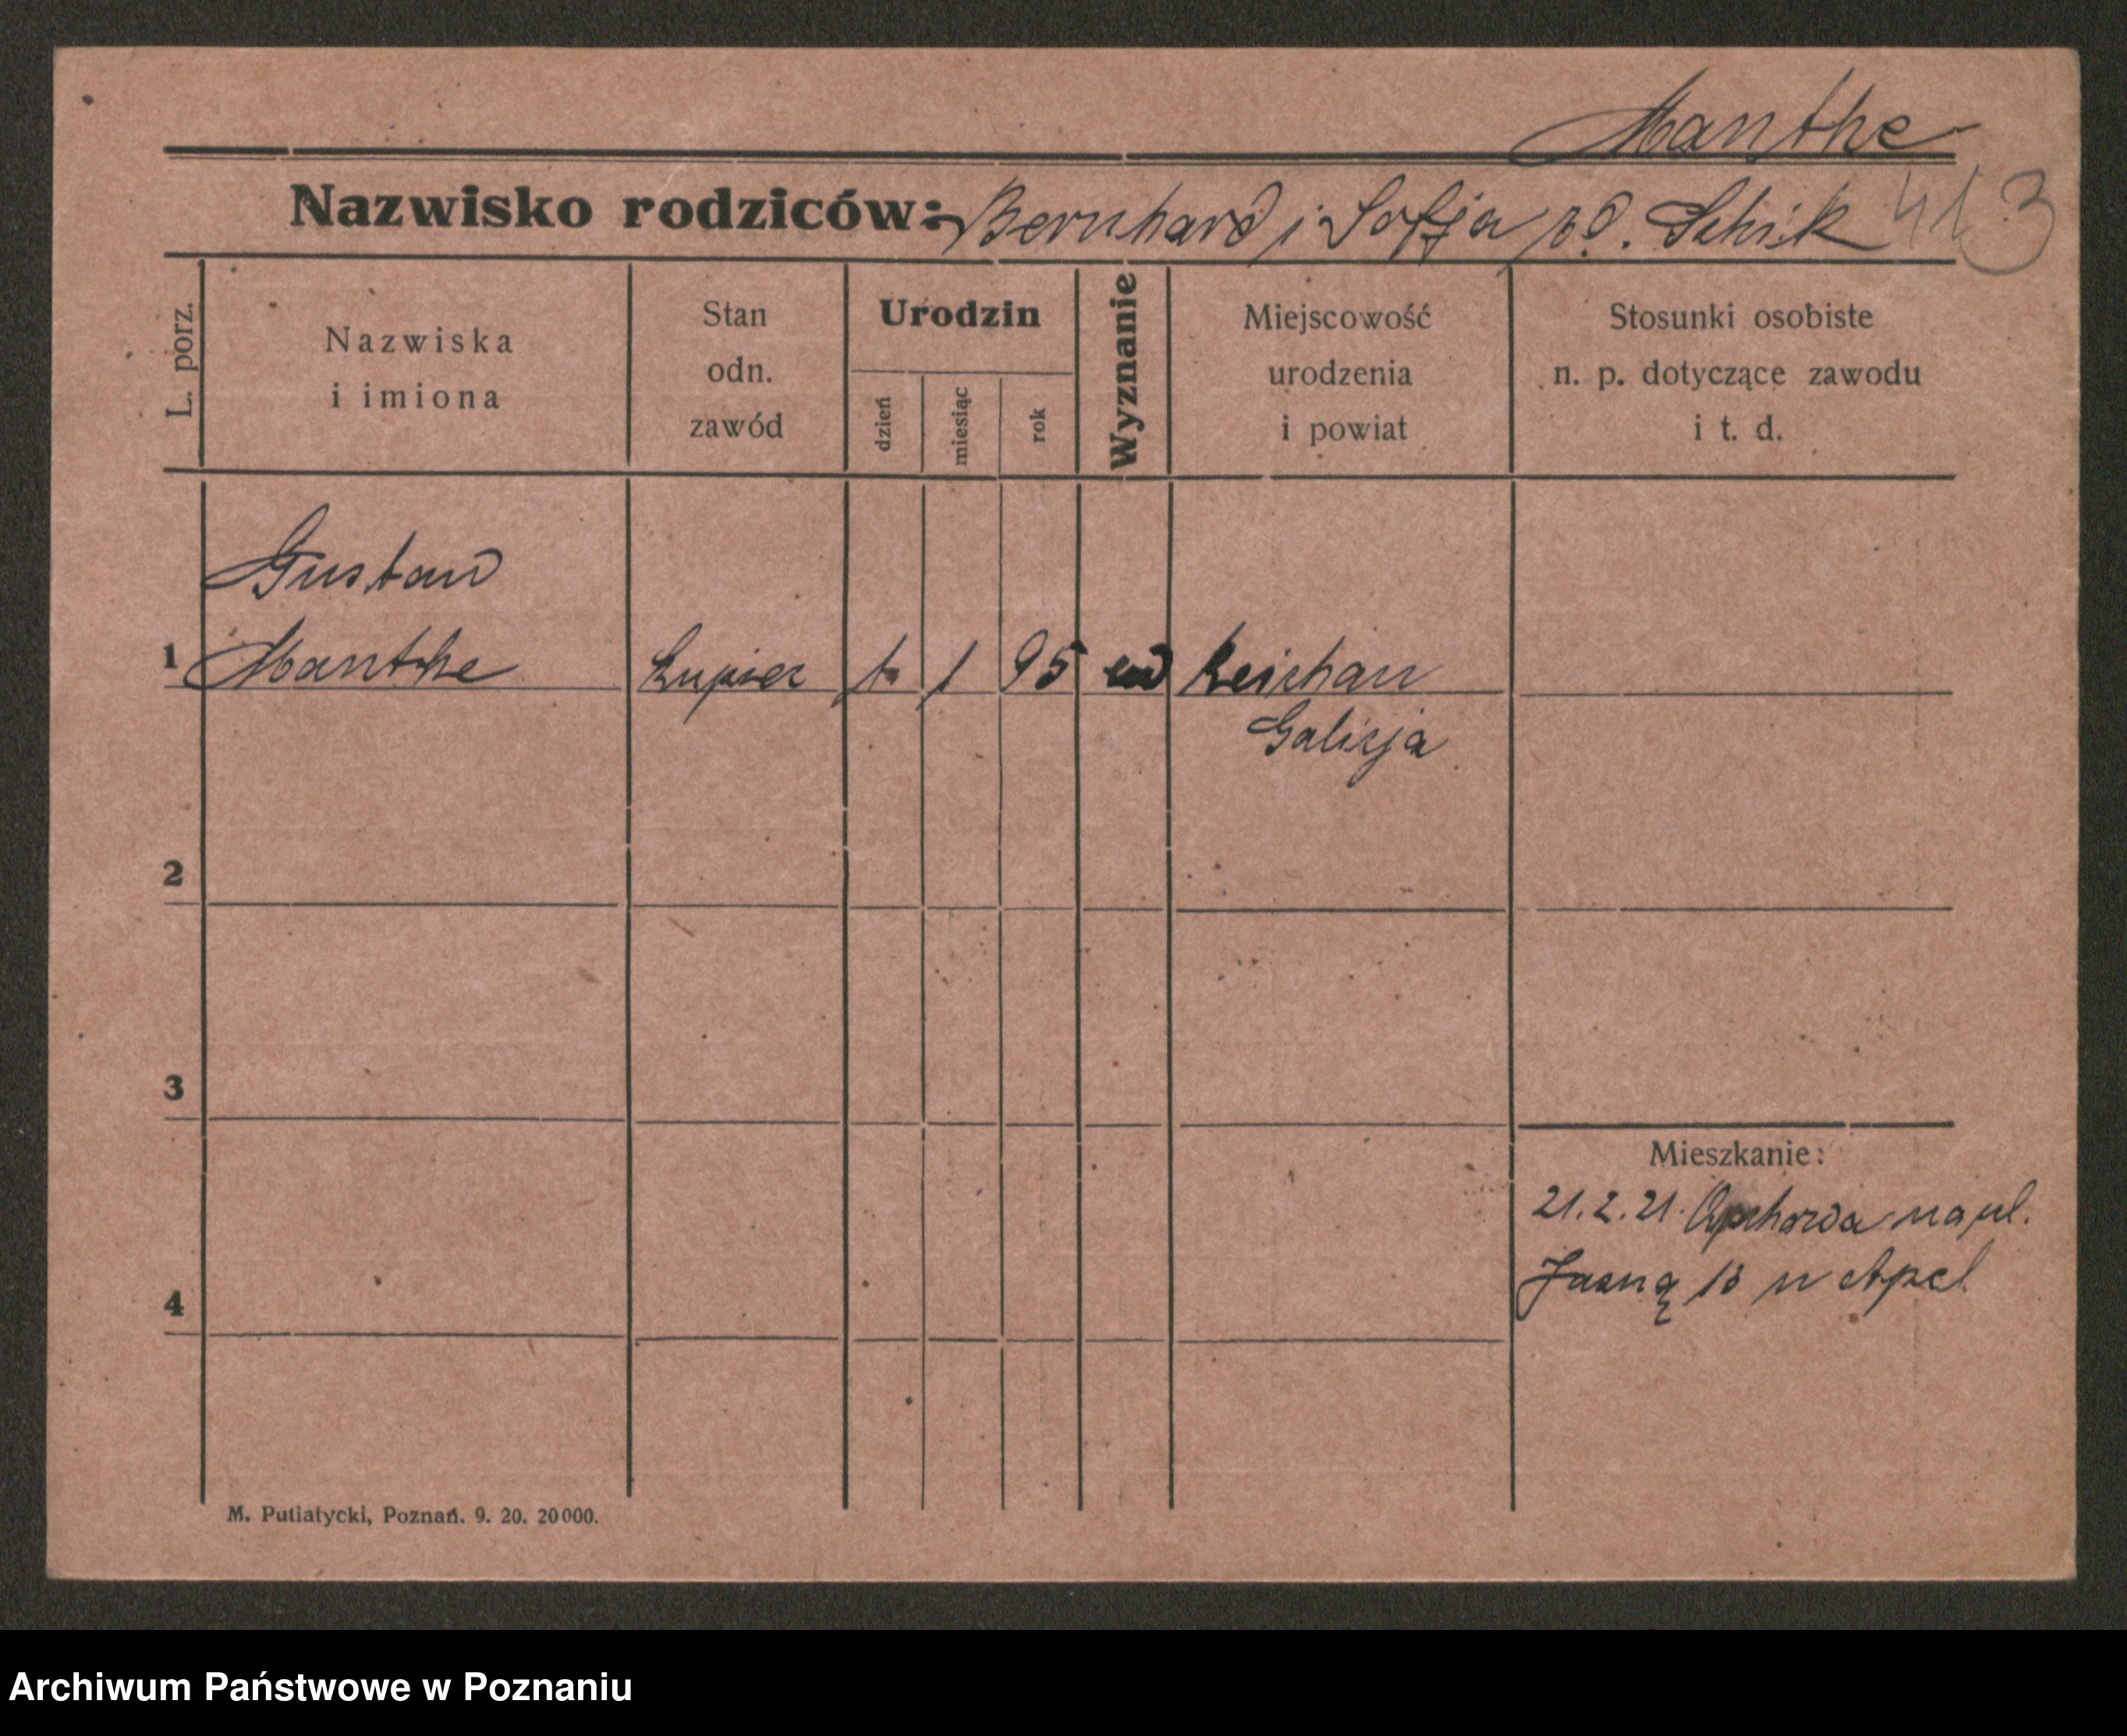 Manthe
Nazwisko rodziców: Bernhard i Sofja rd. Schik
413
L. porz.
Nazwiska
i imiona
Stan
odn.
zawód
Urodzin
dzień
miesiąc
rok
Wyznanie
Miejscowość
urodzenia
i powiat
Stosunki osobiste
n. p. dotyczące zawodu
i t. d.
Gustaw
1 Manthe kupiec 1 95 Reichau
Galicja
2
3
4
Mieszkanie:
21.2.21. na ul.
Jasną 13 u Apel
M. Putiatycki, Poznań. 9. 20. 20000.
Archiwum Państwowe w Poznaniu